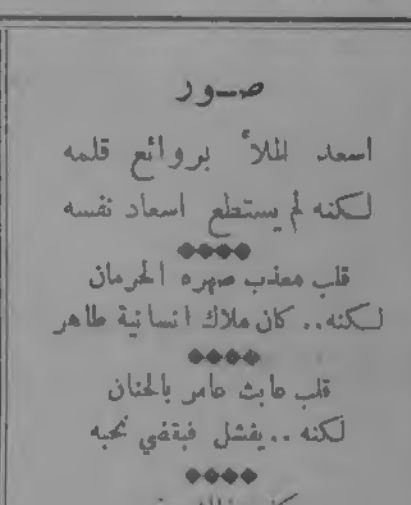 صور
اسعد الملأ بروائع قلمه
لكنه لم يستطع اسعاد نفسه
قلب معذب صهره الحرمان
لكنه.. كان ملاك انسانية طاهر
قلب عابث عامر بالحنان
لكنه.. يفشل فيقضي نحبه